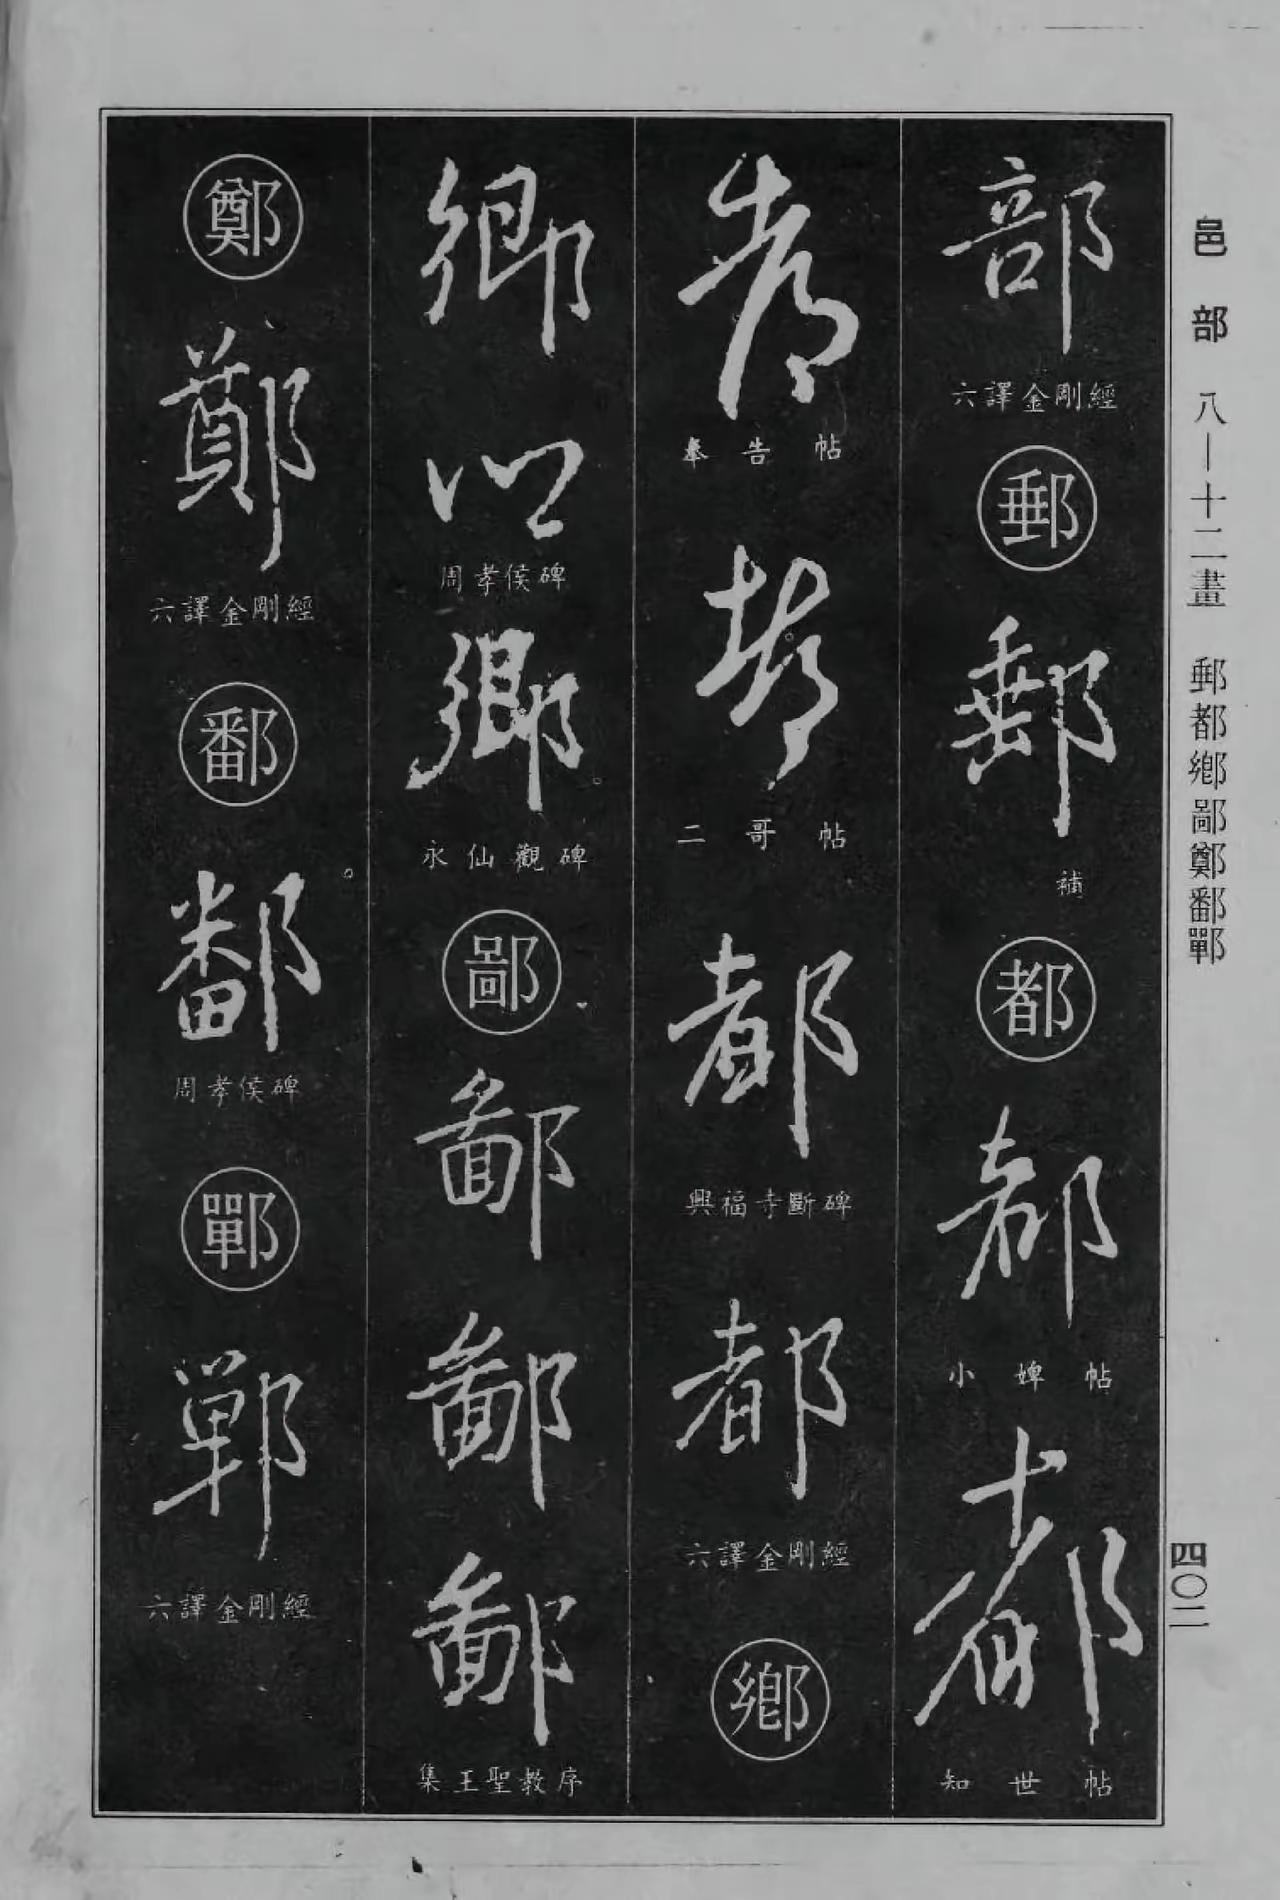 邑部 八—十二畫 郵都鄉鄙鄭鄱鄲
四〇二
部
六譯金剛經
郵
郵
補
都
都
小婢帖
都
知世帖
都
奉告帖
都
二哥帖
都
興福寺斷碑
都
六譯金剛經
鄉
鄉
周孝侯碑
鄉
永仙觀碑
鄙
鄙
鄙
鄙
集王聖教序
鄭
鄭
六譯金剛經
鄱
鄱
周孝侯碑
鄲
鄲
六譯金剛經